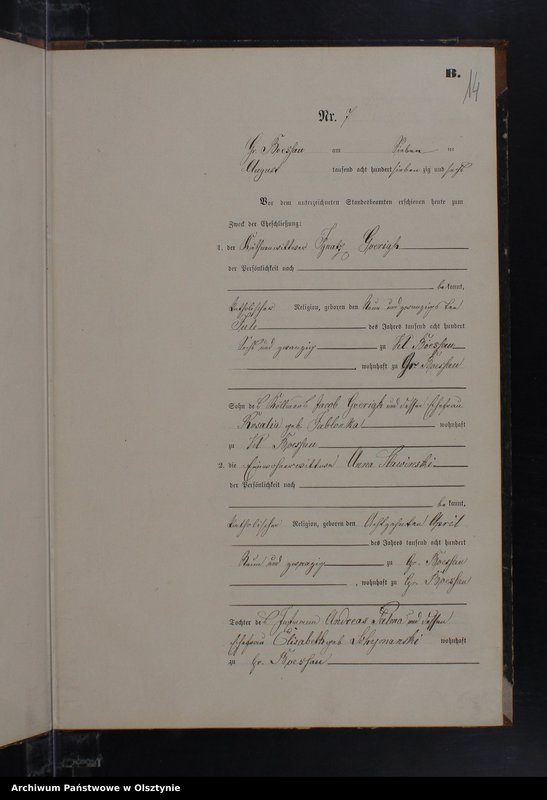 B.
14
Nr. 7
Gr. Boessau am Sieben ten
August tausend acht hundert sieben zig und sechs
Vor dem unterzeichneten Standesbeamten erschienen heute zum
Zweck der Eheschließung:
1. der Käthnerwittwer Ignatz Goerigk
der Persönlichkeit nach
be kannt,
katholischer Religion, geboren den Neun und zwanzigs ten
Juli des Jahres tausend acht hundert
Sechs und zwanzig zu Kl Boessau
, wohnhaft zu Gr Boessau
Sohn des Jacob Goerigk und dessen Ehefrau
Rosalia geb Jablonka wohnhaft
zu Kl Boessau
2. die Einwohnerwittwe Anna Slawinski
der Persönlichkeit nach
be kannt,
katholischer Religion, geboren den Achtzehnten April
des Jahres tausend acht hundert
Neun und zwanzig zu Gr. Boessau
, wohnhaft zu Gr. Boessau
Tochter des Andreas Palma und dessen
Ehefrau Elisabeth geb wohnhaft
zu Gr. Boessau
Archiwum Państwowe w Olsztynie